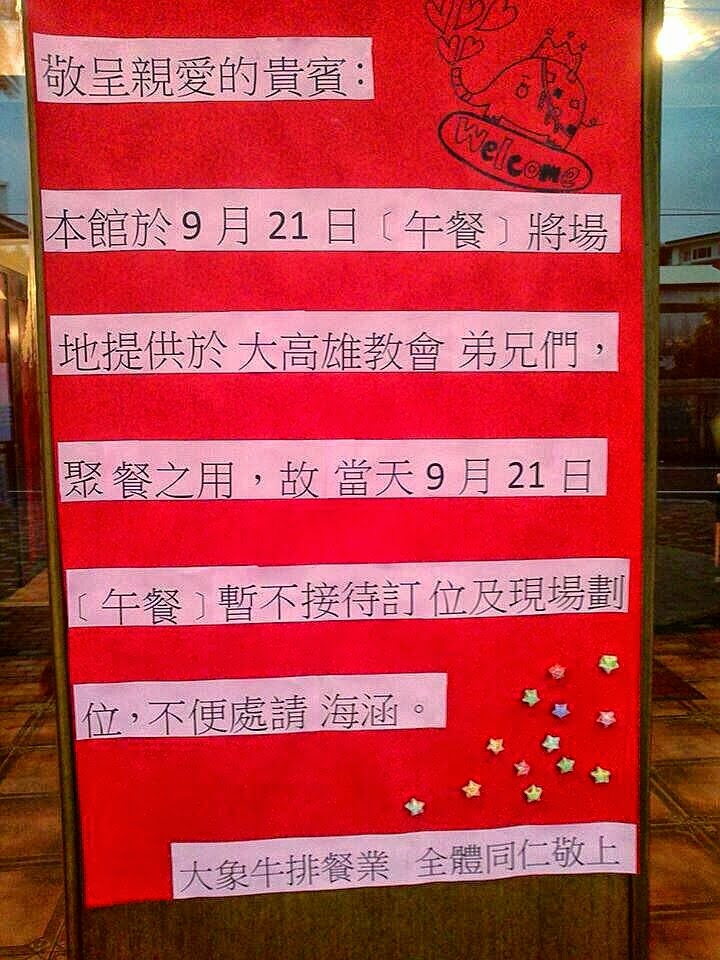 Welcome
敬呈親愛的貴賓：
本館於 9 月 21 日﹝午餐﹞將場
地提供於 大高雄教會 弟兄們，
聚 餐之用，故 當天 9 月 21 日
﹝午餐﹞暫不接待訂 位及現場劃
位，不便處請 海涵。
大象牛排餐業 全體同仁敬上